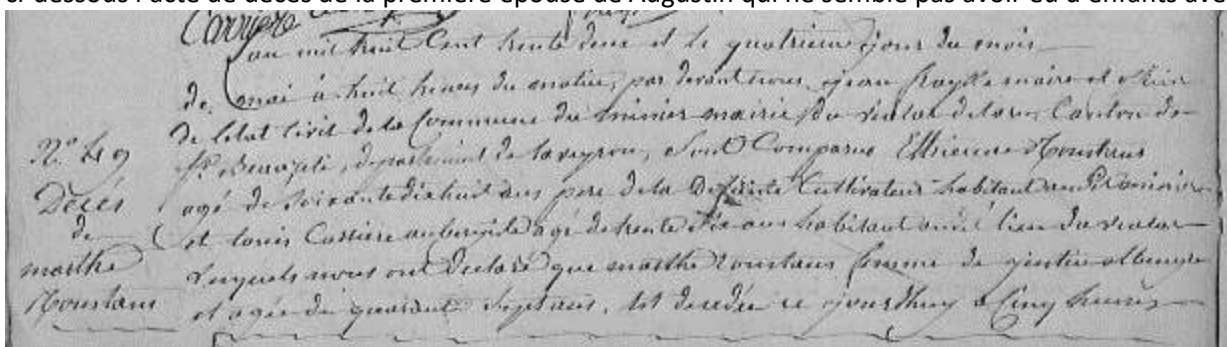 ci-dessous l'acte de décès de la première épouse de Augustin qui ne semble pas avoir eu d'enfants ave
Carriere
Lan mil huit Cent trente deux et le quatrieme jour du mois
de mai à huit heures du matin, par devant nous jean maire et
de letat Civil de la Commune du minier mairie du viala Canton de
St Beauzeli, departement de laveyron, Sont Comparus Ettienne Roustans
agé de Soixante dix huit ans pere de la Defunte Cultivateur habitant au
et louis Carriere aubergiste agé de trente Six ans habitant lieu du viala
Lesquels nous ont Declaré que marthe roustans femme de
et agée de quarante Sept ans, est decedée ce jourdhuy à Cinq heures
N° 49
Decés
de
marthe
Roustans